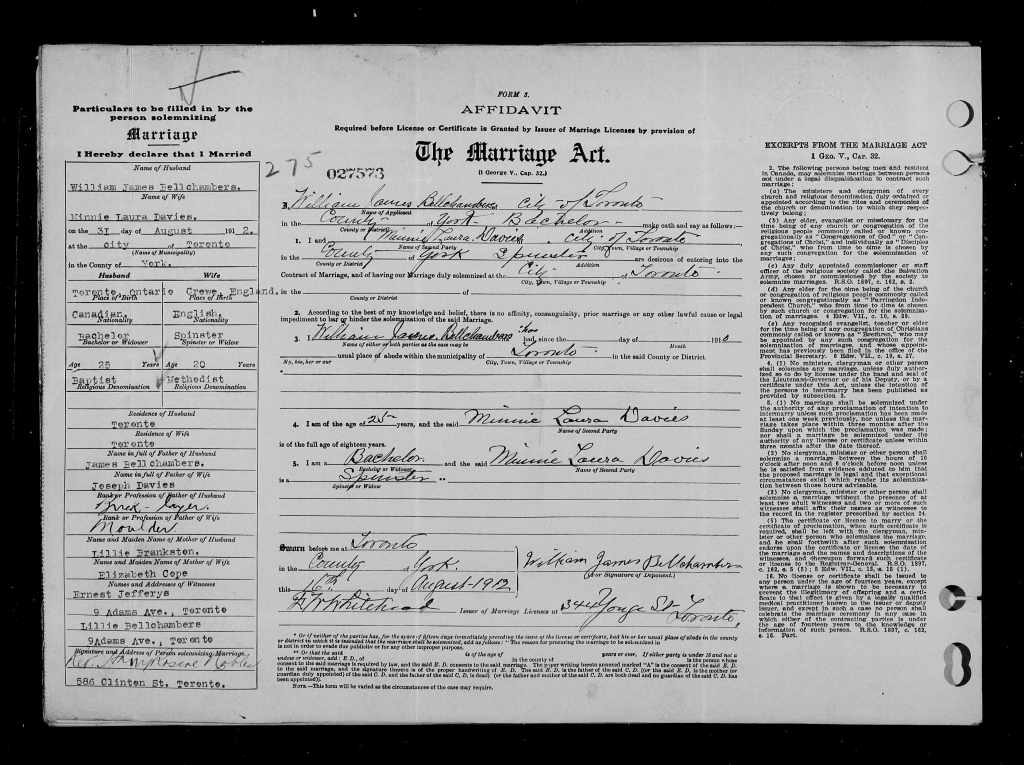 Particulars to be filled in by the
person solemnizing
Marriage
I Hereby declare that I Married
Name of Husband
William James Bellchambers.
Name of Wife
Minnie Laura Davies.
on the 31 day of August 1912.
at the city of Toronto
(Name of Municipality)
in the County of York.
Husband Wife
Toronto, ontario Crewe, England.
Place of Birth Place of Birth
Canadian. English.
Nationality Nationality
Bachelor Spinster
Bachelor or Widower Spinster or Widow
Age 25 Years Age 20 Years
Baptist Methodist
Religious Denomination Religious Denomination
Residence of Husband
Toronto
Residence of Wife
Toronto
Name in full of Father of Husband
James Bellchambers.
Name in full of Father of Wife
Joseph Davies
Rank or Profession of Father of Husband
Brick-layer.
Rank or Profession of Father of Wife
Moulder
Name and Maiden Name of Mother of Husband
Lillie Brankston.
Name and Maiden Name of Mother of Wife
Elizabeth Cope
Names and Addresses of Witnesses
Ernest Jefferys
9 Adams Ave., Toronto
Lillie Bellchambers
9Adams Ave., Toronto
Signature and Address of Person solemnizing Marriage
Rev.
586 Clinton St. Toronto.
FORM 3.
AFFIDAVIT
Required before License or Certificate is Granted by Issuer of Marriage Licenses by provision of
The Marriage Act.
(1 George V., Cap. 32.)
275
027573
William James Bellchambers City of Toronto
Name of Applicant Addition
in the County of York Bachelor make oath and say as follow:—
County or District
1. I and Minnie Laura Davies City of Toronto
Name of Second Party City, Town, Village or Township
in the County of York Spinster are desirous of entering into the
County or District Addition
Contract of Marriage, and of having our Marriage duly solemnized at the City of Toronto
City, Town, Village or Township
in the of
County or District
2. According to the best of my knowledge and belief, there is no affinity, consanguinity, prior marriage or any other lawful cause or legal
impediment to bar or hinder the solemnization of the said Marriage.
3. William James Bellchambers has had, since the day of 191
Name of either of both parties as the case may be Month
usual place of abode within the municipality of Toronto in the said County or District.
His, her or our City, Town, Village or Township
4. I am of the age of 25 years, and the said Minnie Laura Davies
Name of Second Party
is of the full age of eighteen years.
5. I am a Bachelor and the said Minnie Laura Davies
Bachelor or Widower Name of Second Party
is a Spinster
Spinster or Widow
Sworn before me at Toronto
in the County of York.
this 16th day of August 1912
William James Bellchambers
(or Signature of Deponent.)
Issuer of Marriage Licenses at 344 Yonge St Toronto,
* Or if neither of the parties has, for the space of fifteen days immediately preceding the issue of the license or certificate, had his or her usual place of abode in the county
or district in which it is intended that the marriage shall be solemnized, add as follows: "The reason for procuring the marriage to be solemnized in
is not in order to evade due publicity or for any other improper purpose.
** Or that the said is of the age of years or over. If either party is under 18 and is not a
widow or widower, add: E. D., of in the county of is the person whose
consent to the said marriage is required by law, and the said E. D. consents to the said marriage. The paper writing hereto annexed marked "A" is the consent of the said E. D.
to the said marriage, and the signature thereto is of the proper handwriting of E. D. The said E. D. is the father of the said C. D. (or the said E. D. is the mother (or
guardian duly appointed) of the said C. D. and the father of the said C. D. is dead) (or the father and mother of the said C. D. are both dead and no guardian of the said C. D. has
been appointed)).
NOTE.—This form will be varied as the circumstances of the case may require.
EXCERPTS FROM THE MARRIAGE ACT
1 GEO. V., CAP. 32.
2. The following persons being men and resident
in Canada, may solemnize marriage between persons
not under a legal disqualification to contract such
marriage:
(a) The ministers and clergymen of every
church and religious denomination duly ordained or
appointed according to the rites and ceremonies of
the church or denomination to which they respec-
tively belong;
(b) Any elder, evangelist or missionary for the
time being of any church or congregation of the
religious people commonly called or known con-
gregationally as "Congregations of God" or "Con-
gregations of Christ," and individually as "Disciples
of Christ," who from time to time is chosen by
any such church or congregation for the solemniza-
tion of marriage;
(c) Any duly appointed commissioner or staff
officer of the religious society called the Salvation
Army, chosen or commissioned by the society to
solemnize marriages. R.S.O. 1897, c. 162, s. 2.
(d) Any elder for the time being of the church
or congregation of religious people commonly called
or known congregationally as "Farringdon Inde-
pendent Church," who from time to time is chosen
by such church or congregation for the solemniza-
tion of marriages.
(e) Any recognized evangelist, teacher or elder
for the time being of any congregation of Christians
commonly called or known as "Brethren," who may
be appointed by any such congregation for the
solemnization of marriages, and whose appoint-
ment has previously been filed in the office of the
Provincial Secretary. 8 Edw. VII., c. 19, s. 27.
4. (1) No minister, clergyman or other person
shall solemnize any marriage, unless duly author-
ized so to do by license under the hand and seal of
the Lieutenant-Governor or of his Deputy, or by a
certificate under this Act, unless the intention of
the persons to intermarry has been published as
provided by subsection 2.
5. (1) No marriage shall be solemnized under
the authority of any proclamation of intention to
intermarry unless such proclamation has been made
at least one week previously, nor unless the mar-
riage takes place within three months after the
Sunday upon which the proclamation was made;
nor shall a marriage be solemnized under the
authority of any license or certificate unless within
three months after the date thereof.
(2) No clergyman, minister or other person shall
solemnize a marriage between the hours of 10
o'clock after noon and 6 o'clock before noon unless
he is satisfied from evidence adduced to him that
the proposed marriage is legal and that exceptional
circumstances exist which render its solemniza-
tion between those hours advisable.
(3) No clergyman, minister or other person shall
solemnize a marriage without the presence of at
least two adult witnesses and two or more of such
witnesses shall affix their names as witnesses to
the record in the register prescribed by section 24.
(5) The certificate or license to marry or the
certificate of proclamation, when such certificate is
required, shall be left with the clergyman, min-
ister or other person who solemnizes the marriage,
and he shall forthwith after such solemnization
endorse upon the certificate or license the date of
the marriage and the names and descriptions of its
witnesses, and thereupon forward such certificate
or license to the Registrar-General. R.S.O. 1897,
c. 162, s. 5 (5); 8 Edw. VII., c. 19, s. 18 (1).
16. No license or certificate shall be issued to
any person under the age of fourteen years, except
where a marriage is shown to be necessary to
prevent the illegitimacy of offspring and a certifi-
cate to that effect is given by a legally qualified
medical practitioner known to the issuer or deputy
issuer, and except in such a case no person shall
celebrate the marriage ceremony in any case in
which either of the contracting parties is under
the age of fourteen years to the knowledge or
information of such person. R.S.O. 1897, c. 162,
s. 16. Part.